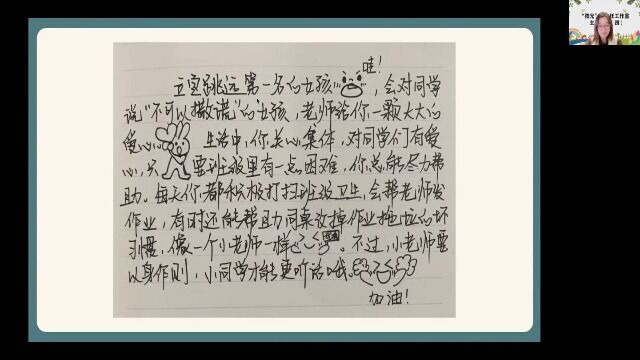 哇！
立定跳远第一名的女孩，会对同学
说“不可以撒谎”的女孩，老师给你一颗大大的
爱心。生活中，你关心集体，对同学们有爱
心，只要班级里有一点困难，你总能尽力帮
助。每天你都积极打扫班级卫生，会帮老师发
作业，有时还能帮助同桌改掉作业拖拉的坏
习惯，像一个小老师一样。不过，小老师要
以身作则，小同学才能更听话哦。
加油！
“微光”
工作室